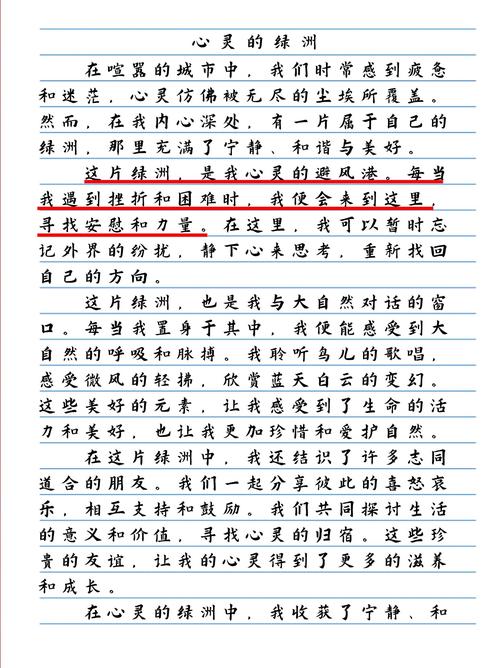 心灵的绿洲
在喧嚣的城市中，我们时常感到疲惫
和迷茫，心灵仿佛被无尽的尘埃所覆盖。
然而，在我内心深处，有一片属于自己的
绿洲，那里充满了宁静、和谐与美好。
这片绿洲，是我心灵的避风港。每当
我遇到挫折和困难时，我便会来到这里，
寻找安慰和力量。在这里，我可以暂时忘
记外界的纷扰，静下心来思考，重新找回
自己的方向。
这片绿洲，也是我与大自然对话的窗
口。每当我置身于其中，我便能感受到大
自然的呼吸和脉搏。我聆听鸟儿的歌唱，
感受微风的轻拂，欣赏蓝天白云的变幻。
这些美好的元素，让我感受到了生命的活
力和美好，也让我更加珍惜和爱护自然。
在这片绿洲中，我还结识了许多志同
道合的朋友。我们一起分享彼此的喜怒哀
乐，相互支持和鼓励。我们共同探讨生活
的意义和价值，寻找心灵的归宿。这些珍
贵的友谊，让我的心灵得到了更多的滋养
和成长。
在心灵的绿洲中，我收获了宁静、和